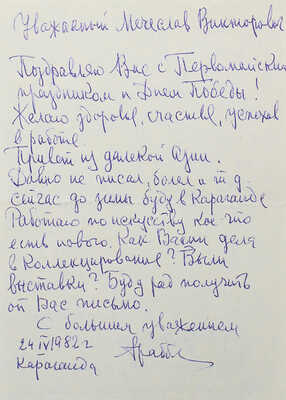 Уважаемый Мечеслав Викторович
Поздравляю Вас с Первомайским
праздником и Днем Победы!
Желаю здоровья, счастья, успехов
в работе.
Привет из далекой Азии.
Давно не писал, болел и т д
сейчас до зимы буду в Караганде
Работаю по искусству кое что
есть нового. Как Ваши дела
в Коллекционирование? Были
выставки? Буду рад получить
от Вас письмо.
С большим уважением
24 IV 1982 г
Караганда